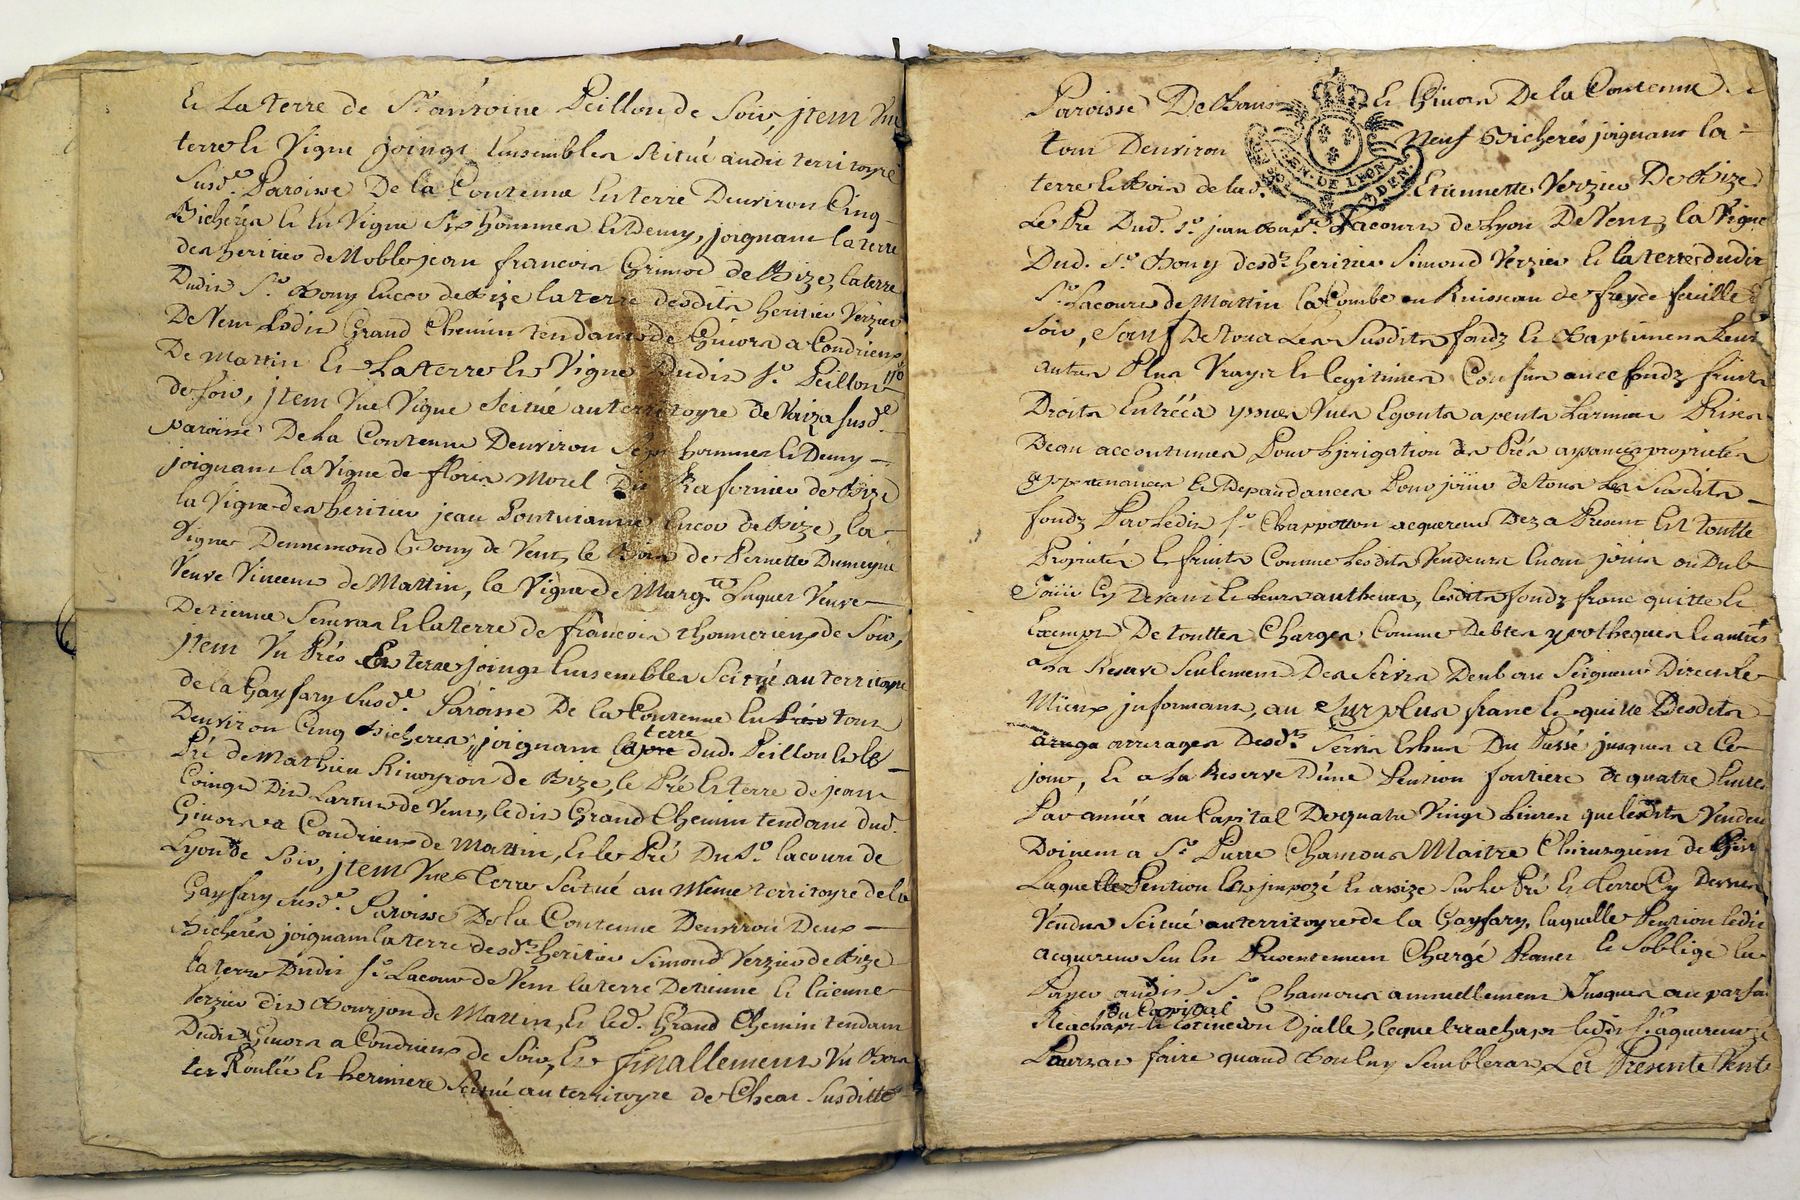 Et La terre de Sr anthoine Peillon de Soir, jtem Une
terre et Vigne joings Ensembles scitué audit territoyre
susde. Paroisse De la Contenue En terre Denviron Cinq
Bicherés et En Vigne Six hommes et Demy, joignant la terre
des heritiers de Noble jean francois Grimod de Bize, la terre
Dudit Sr. Bony Encor de Bize la terre desdits heritiers Verzieu
De Vent Ledit Grand Chemin tendant de Givors a Condrieux
De Matin et La terre et Vigne Dudit Sr. Peillon
de Soir, jtem Une Vigne scitué au territoyre de susde.
paroisse De La Contenue Denviron Sept hommes et Demy
joignant la Vigne de fleurs Morel Du de Bize
la Vigne des heritiers jean Encor de Bize, la
Vigne Dennemond Bony de Vent, le Bois de Pernette
Veuve Vincent de Mattin, la Vigne de Margte. Veuve
Detienne et la terre de francois de Soir,
jtem Un Prés Et terre joings Ensembles Scitué au territoyre
de la Gayfary Susde. Paroisse De la Contenue En tout
Denviron Cinq Bicherés, joignant la terre dud. Peillon et le
Pré de Mathieu Rivoyron de Bize, le Pré Et terre de jean
Coinge Dit de Vent, ledit Grand Chemin tendant dud.
Givors a Condrieux de Mattin, Et le Pré Du Sr. lacour de
Lyon de Soir, jtem Une terre Scitué au Même territoyre de la
Gayfary Susde. Paroisse De la Contenue Denviron Deux
Bicherés joignant la terre desdts heritiers Simond Verzieu de Bize
la terre Dudit Sr. Lacour de Vent la terre Detienne et Etienne
Verzieu dit Bourjon de Mattin, Et led. Grand Chemin tendant
Dudit Givors a Condrieux de Soir, Et finallement Un Bois
et herminere scitué au territoyre de Cheat Susditte
Paroisse De Bans et Givors De la Contenue
tout Denviron Neuf Bicherés joignant la
GEN. DE LEON
DEN.
terre et Bois de lad. Etiennette Verzieu De Bize
Le Pré Dud. Sr. jean Bapt. Lacour de Lyon De Vent, la Vigne
Dud. Sr. Bony desdts heritiers Simond Verzieu Et la terre dudit
Sr. Lacour de Mattin la Combe ou Ruisseau de freyde feuille
Soir, Sauf De tous Les Susdits fondz et Baptimens Leurs
autres Plus Vrays et legitimes Confins avec fondz fruits
Droits Entrées yssues Vues Egouts Prises
Deau accoutumés Pour Lirrigation des Prés proprietés
appartenances et Depandances Pour joüir de tous Les Susdits
fondz Par Ledit Sr. Chappotton acquereur Dez a Present En toutte
Proprietés et fruits Comme Lesdits Vendeurs En ont joüis ou Dub
Joüir Cy Devant et Leurs autheurs, lesdits fondz franc quitte et
Exempt De touttes Charges Comme Debtes ypotheques et autres
a La Reserve Seulement Des Servis Deub au Seigneur Direct Le
Mieux jnformant, au Surplus franc et quitte Desdits
arrerages Desdts Servis Echus Du Passé jusques a Ce
jour, Et a La Reserve Dune Pension fontiere de quatre Livres
Par année au Capital De quatre Vingt Livres que lesdits Vendeurs
Doivent a Sr. Pierre Chamous Maitre Chirurgien de
Laquelle Pension Est jmpozé et assize Sur le Pré et terre Cy Dessus
Vendus Scitué au territoyre de la Gayfary, laquelle Pension ledit
acquereur Sen Est Presentement Chargé Promet et Soblige la
Payer audit Sr. Chamous annuellement Jusques au parfait
du Cappital
Reachapt et Extinction Dicelle, lequel reachapt ledit Sr. aquereur
Pourrat faire quand Bon luy Semblerat, Les Presente Vente